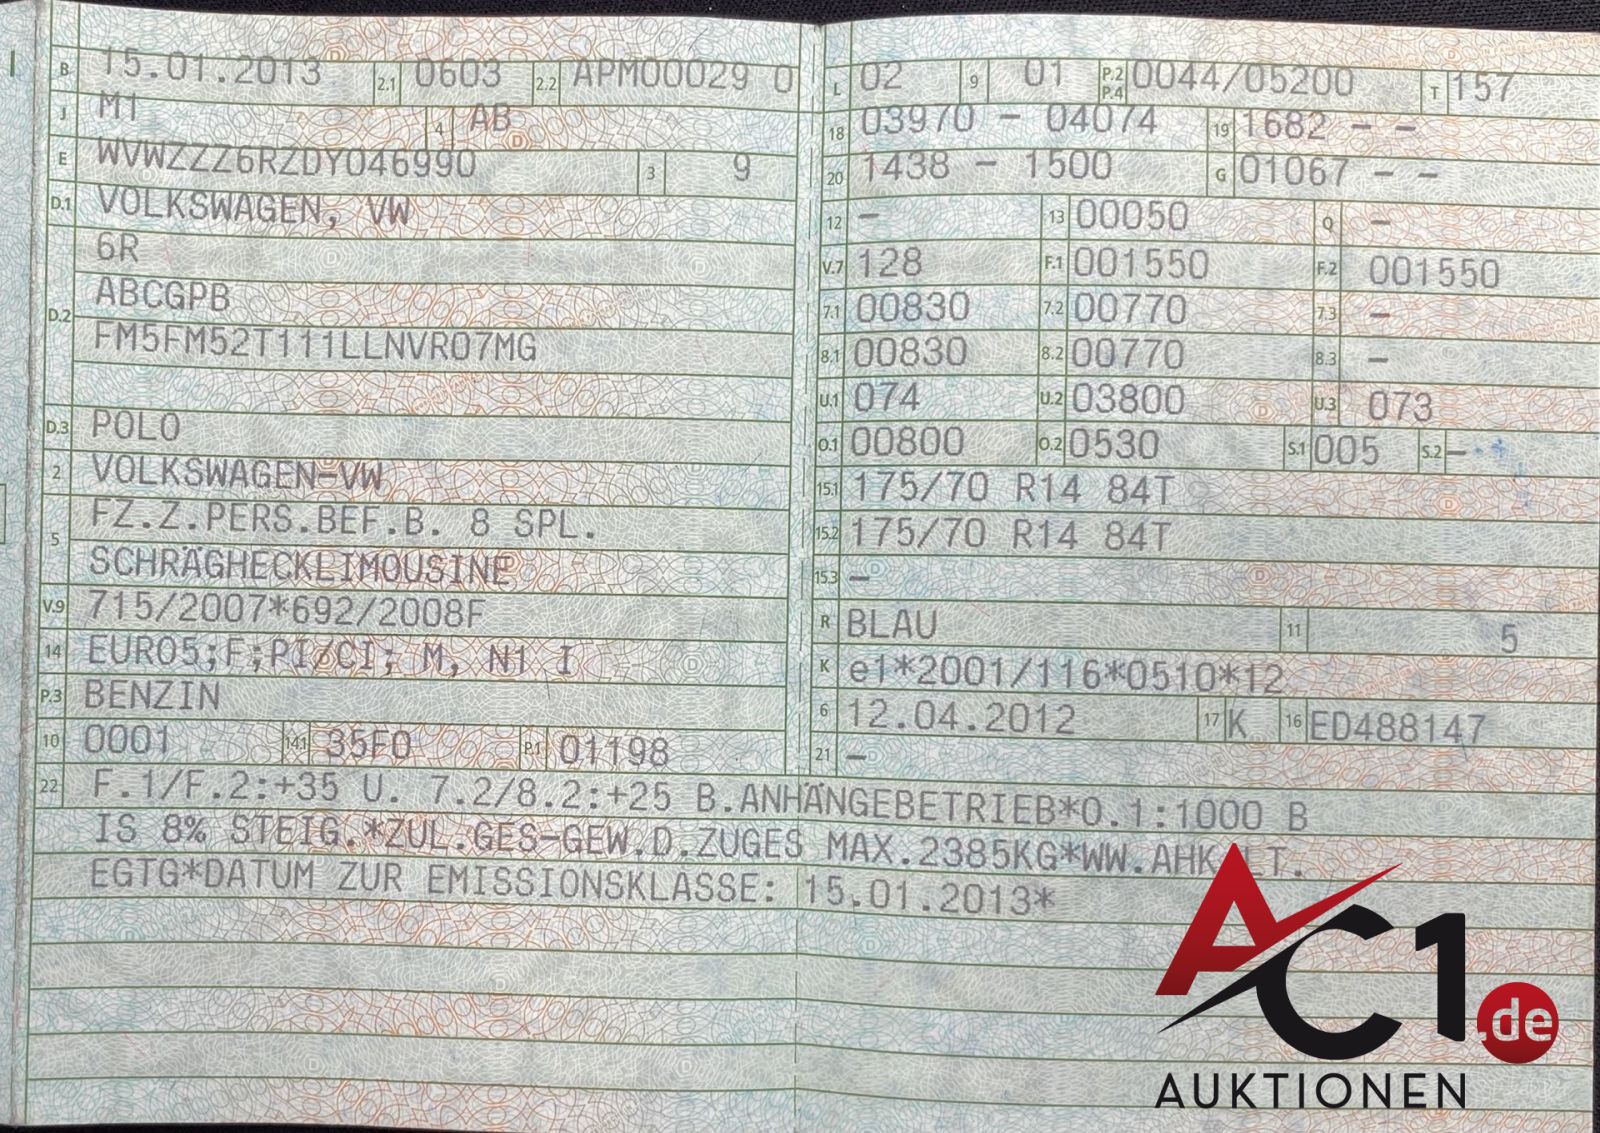 B 15.01.2013 2.1 0603 2.2 APM00029 0
J M1 4 AB
E WVWZZZ6RZDY046990 3 9
D.1 VOLKSWAGEN, VW
6R
D.2 ABCGPB
FM5FM52T111LLNVR07MG
D.3 POLO
2 VOLKSWAGEN-VW
5 FZ.Z.PERS.BEF.B. 8 SPL.
SCHRÄGHECKLIMOUSINE
V.9 715/2007*692/2008F
14 EURO5;F;PI/CI; M, N1 I
P.3 BENZIN
10 0001 14.1 35F0 P.1 01198
L 02 9 01 P.2 P.4 0044/05200 T 157
18 03970 - 04074 19 1682 - -
20 1438 - 1500 G 01067 - -
12 - 13 00050 Q -
V.7 128 F.1 001550 F.2 001550
7.1 00830 7.2 00770 7.3 -
8.1 00830 8.2 00770 8.3 -
U.1 074 U.2 03800 U.3 073
O.1 00800 O.2 0530 S.1 005 S.2 -
15.1 175/70 R14 84T
15.2 175/70 R14 84T
15.3 -
R BLAU 11 5
K e1*2001/116*0510*12
6 12.04.2012 17 K 16 ED488147
21 -
22 F.1/F.2:+35 U. 7.2/8.2:+25 B.ANHÄNGEBETRIEB*O.1:1000 B
IS 8% STEIG.*ZUL.GES-GEW.D.ZUGES MAX.2385KG*WW.AHK LT.
EGTG*DATUM ZUR EMISSIONSKLASSE: 15.01.2013*
AC1.de
AUKTIONEN